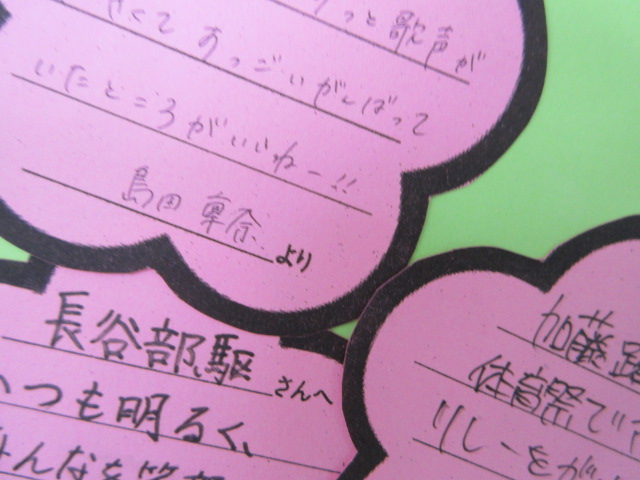 っと歌声が
きくて すっごいがんばって
いたところがいいねー!!
島田 卑奈 より
長谷部 駆 さんへ
いつも明るく、
みんなを笑
加藤
体育祭で
リレーをが